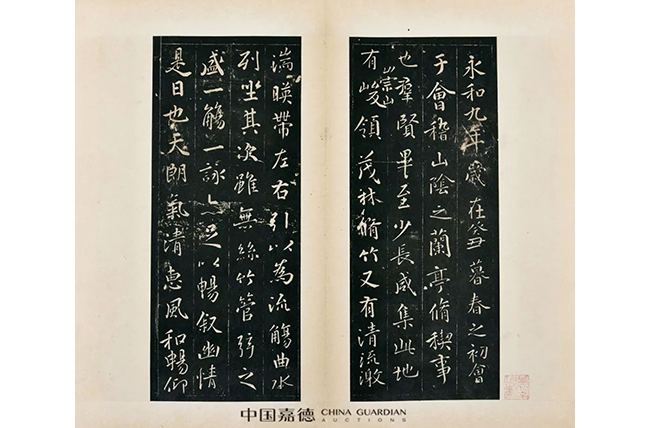 永和九年歲在癸丑暮春之初會
于會稽山陰之蘭亭脩禊事
也羣賢畢至少長咸集此地
有崇山峻領茂林脩竹又有清流激
湍暎帶左右引以為流觴曲水
列坐其次雖無絲竹管弦之
盛一觴一詠亦足以暢叙幽情
是日也天朗氣清惠風和暢仰
中国嘉德 CHINA GUARDIAN
AUCTIONS